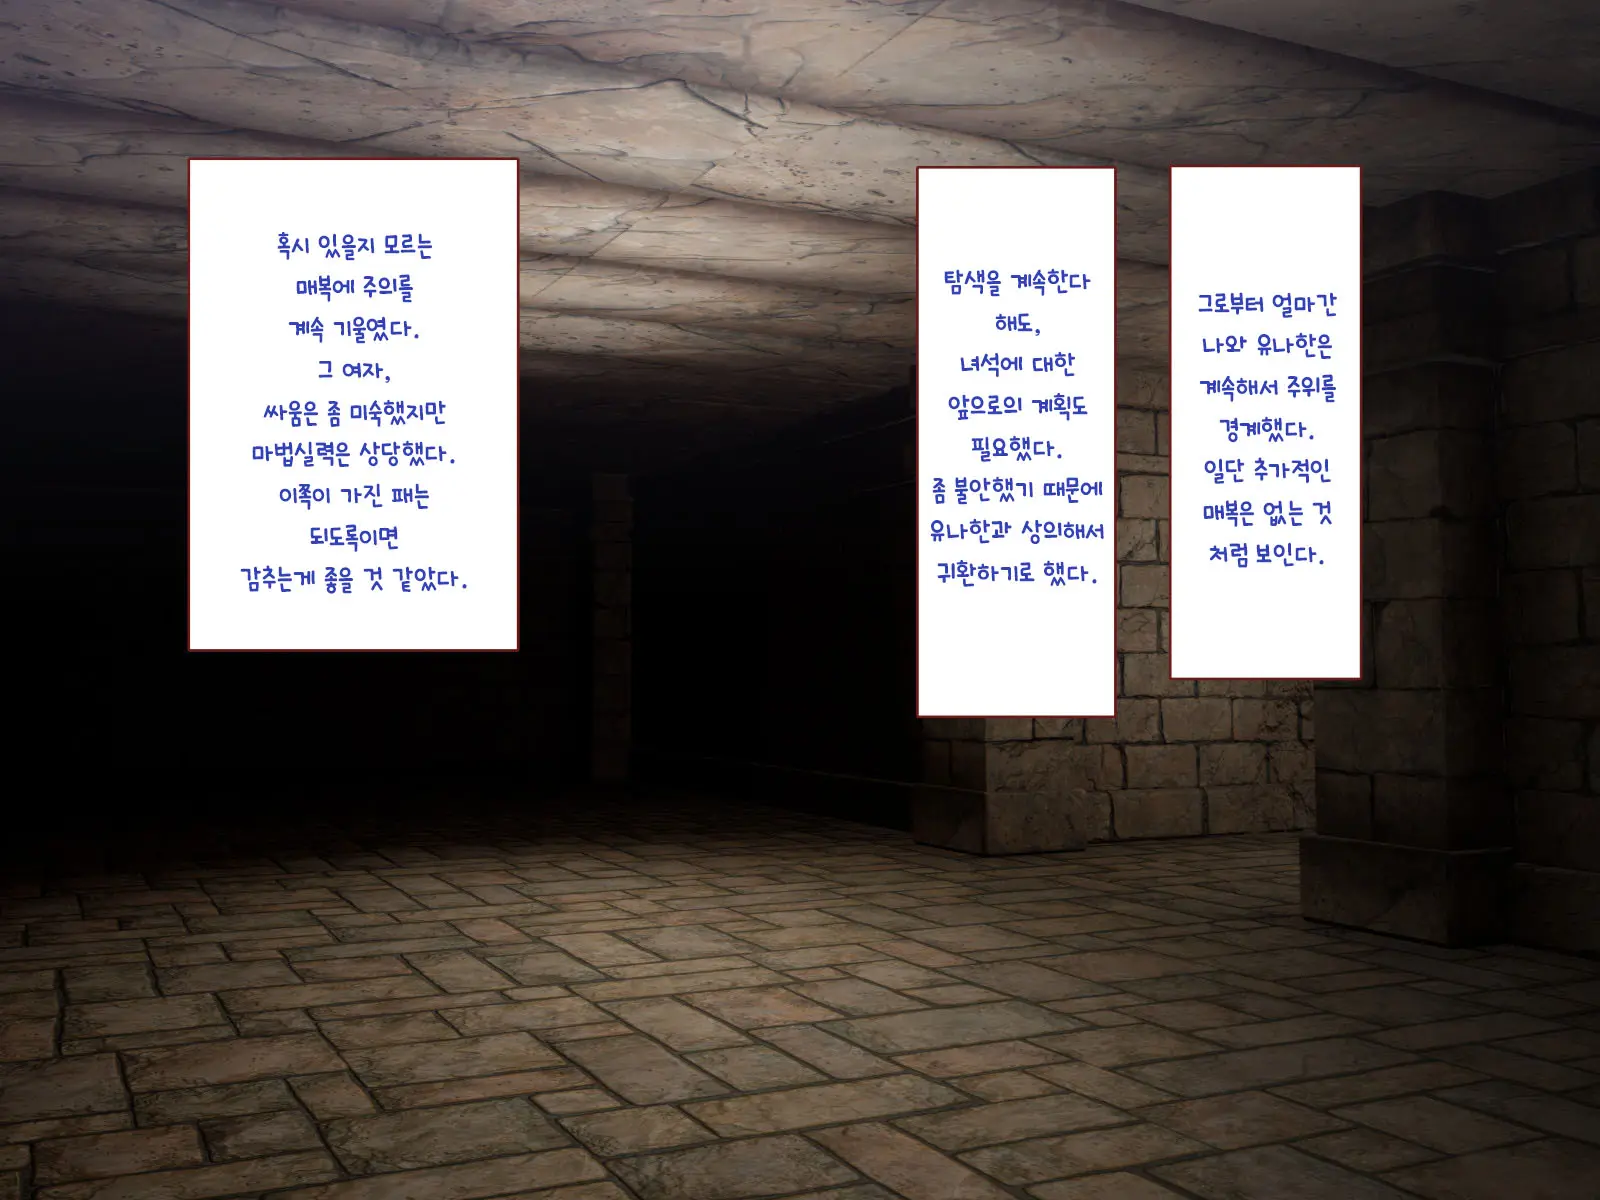 그로부터 얼마간
나와 유나한은
계속해서 주위를
경계했다.
일단 추가적인
매복은 없는 것
처럼 보인다.
탐색을 계속한다
해도,
녀석에 대한
앞으로의 계획도
필요했다.
좀 불안했기 때문에
유나한과 상의해서
귀환하기로 했다.
혹시 있을지 모르는
매복에 주의를
계속 기울였다.
그 여자,
싸움은 좀 미숙했지만
마법실력은 상당했다.
이쪽이 가진 패는
되도록이면
감추는게 좋을 것 같았다.